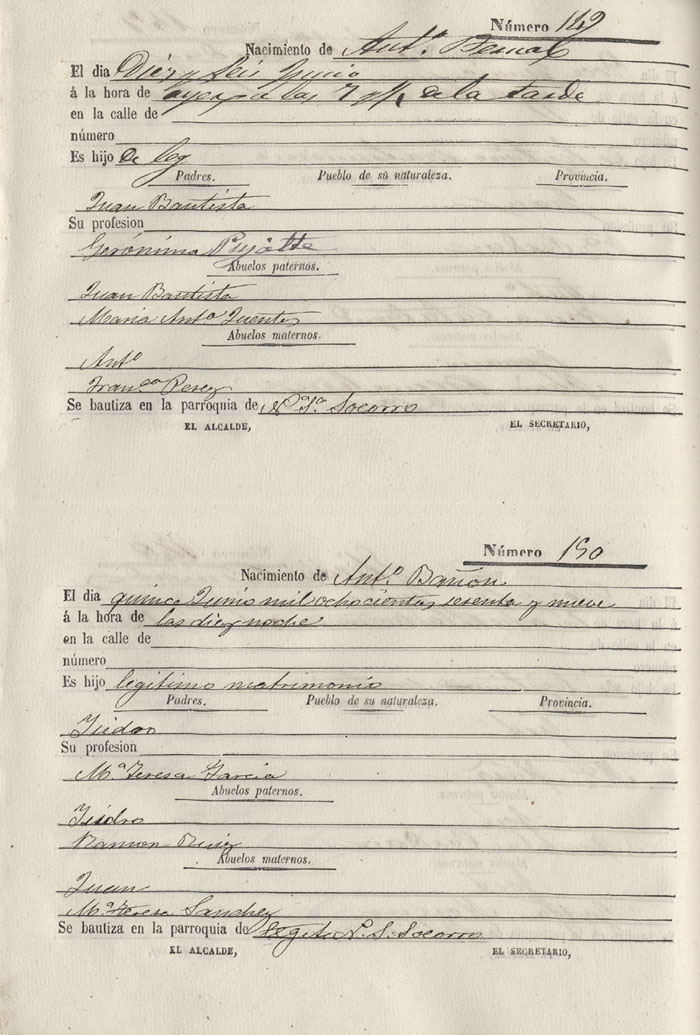 Número 149
Nacimiento de Antº. Bernal
El dia Diez y Seis Junio
á la hora de ayer a las 7 y ½ de la tarde
en la calle de
número
Es hijo de leg
Padres. Pueblo de su naturaleza. Provincia.
Juan Bautista
Su profesion
Gerónima
Abuelos paternos.
Juan Bautista
Maria Antª Fuentes
Abuelos maternos.
Antº
Francª Perez
Se bautiza en la parroquia de Nª Sª Socorro
EL ALCALDE, EL SECRETARIO,
Número 150
Nacimiento de Antº. Bañon
El dia quince Junio mil ochocientos sesenta y nueve
á la hora de las diez noche
en la calle de
número
Es hijo legitimo matrimonio
Padres. Pueblo de su naturaleza. Provincia.
Isidro
Su profesion
Mª Teresa Garcia
Abuelos paternos.
Isidro
Ramon Ruiz
Abuelos maternos.
Juan
Mª Teresa Sanchez
Se bautiza en la parroquia de N. S. Socorro
EL ALCALDE, EL SECRETARIO,